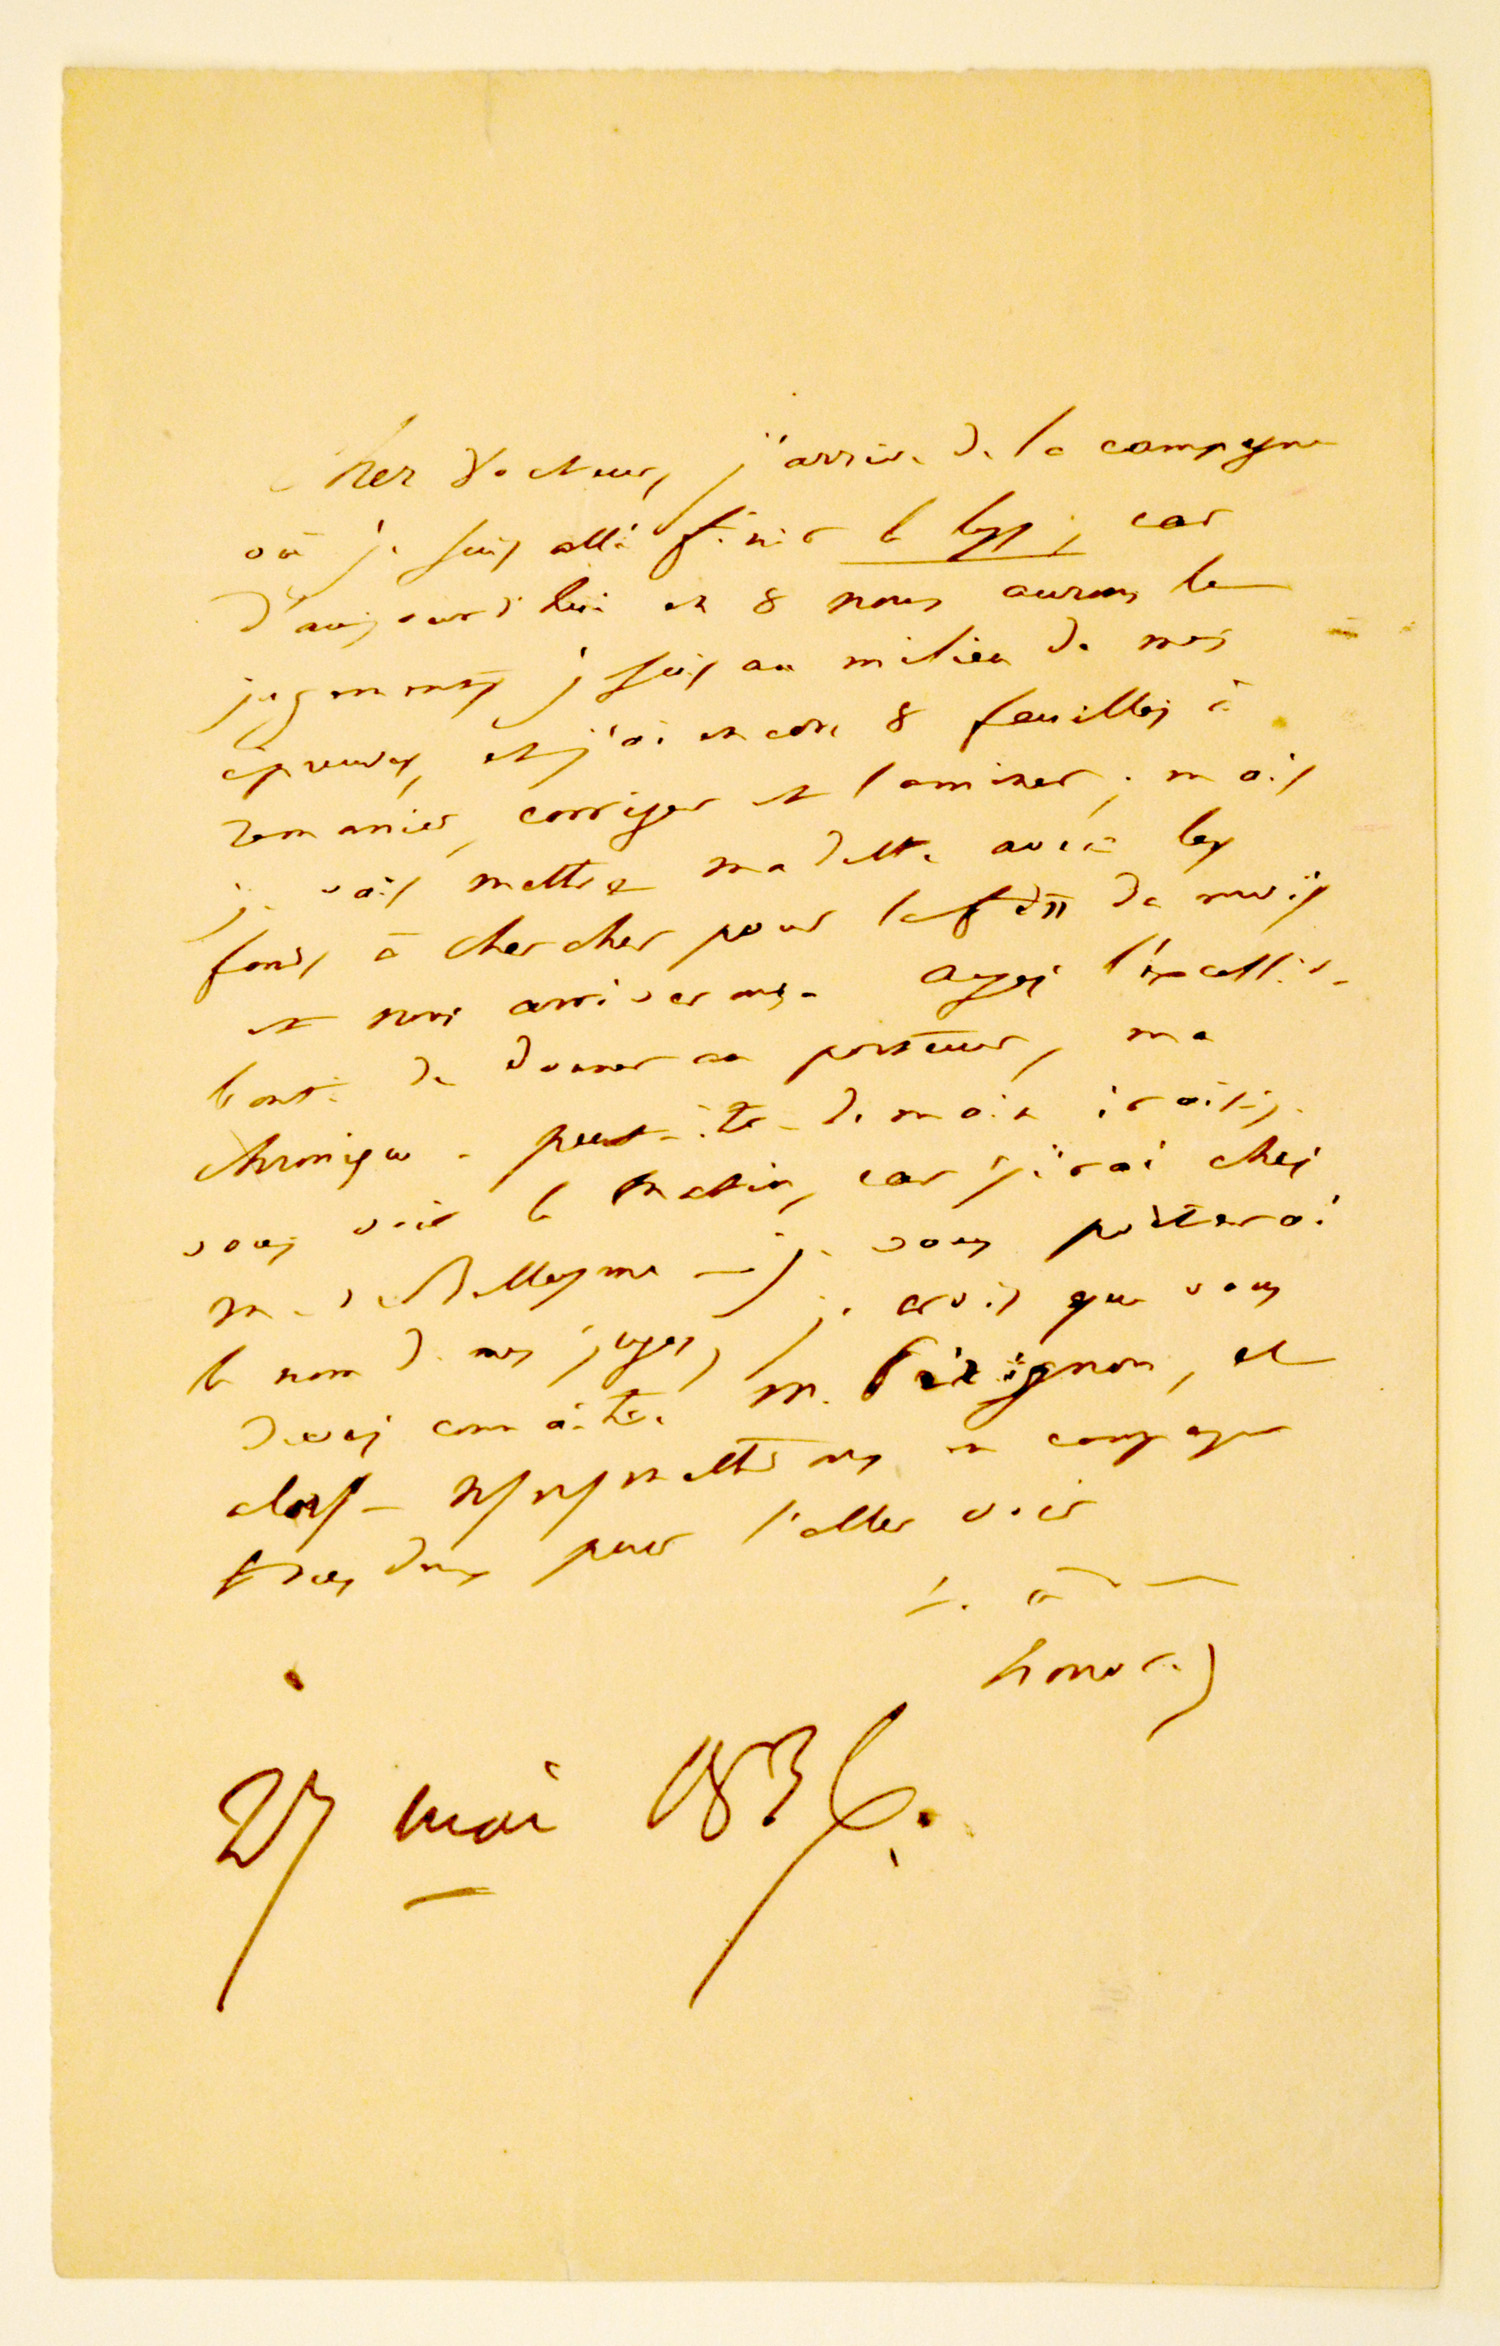 Cher docteur, j'arrive de la campagne
où je suis allé finir le lys, car
d'aujourd'hui en 8 nous aurons le
jugement, je suis au milieu de mes
épreuves, et j'ai encore 8 feuilles à
remanier, corriger et laminer ; mais
je vais mettre ma dette avec les
fonds à chercher pour la fin de mois
et nous arriverons. ayez l'excessive
bonté de donner au porteur, ma
chronique - peut-être demain irais-je
vous voir le matin, car j'irai chez
M. de Belleyme - je vous porterai
le nom de mes juges, je crois que vous
devez connaître M. Pérignon, et
alors - nous nous mettrons en campagne
tous deux pour l'aller voir
t. à v.
honoré
27 mai 1836.